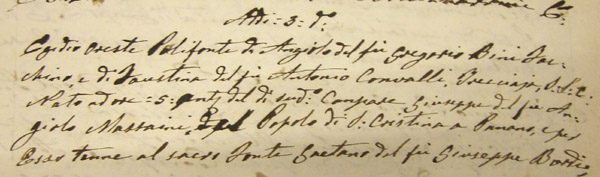 Adì = 3 = d.º
Egidio Oreste Polifonte di Angiolo del fù Gregorio Bini Fac-
chino, e di Faustina del fù Antonio Convalli, Trecciaja, L. L. C.
Nato ad ore = 5 = ant: del dì sud.º Compare Giuseppe del fù An-
giolo Massaini, del Popolo di S: Cristina a Panano, e per
Esso tenne al sacro Fonte Gaetano del fù Giuseppe